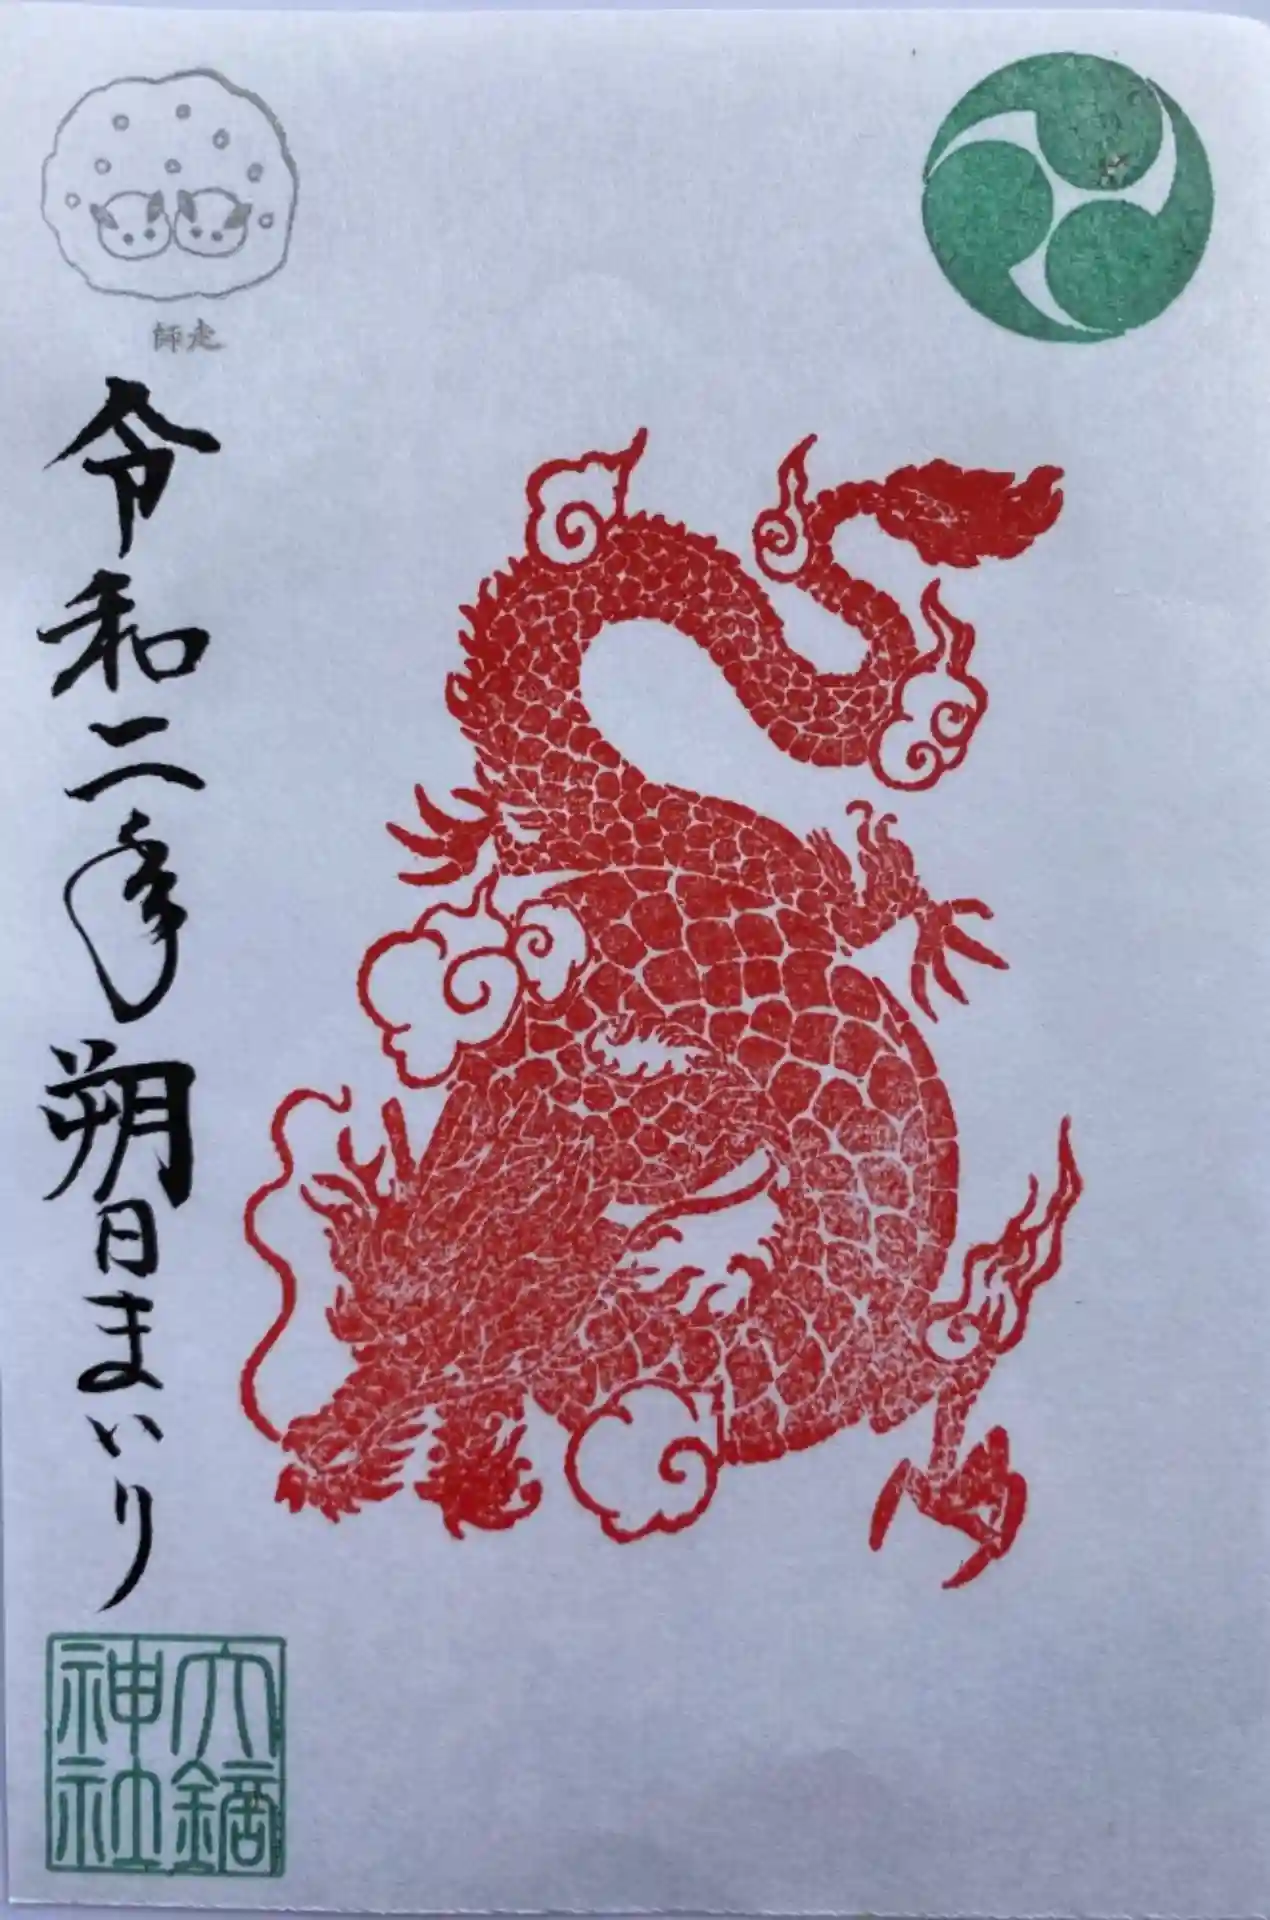 師走
令和二年朔日まいり
六鏑
神社